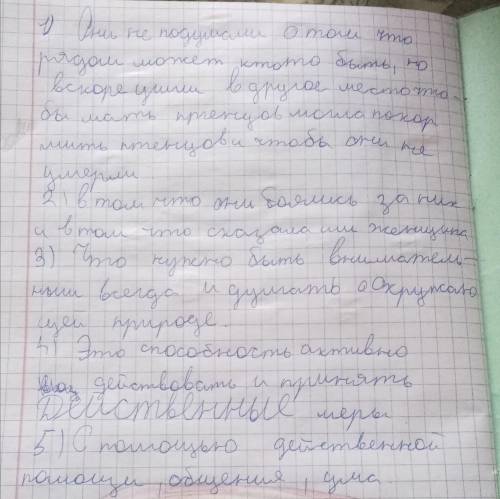 1) Они не подумали о том что
рядом может ктото быть, но
вскоре ушли в другое место что
бы мать птенцов могла покор
мить птенцов и чтобы они не
умерли
2) в том что они боялись за них
и в том что сказала им женщина
3) Что нужно быть вниматель-
ным всегда и думать о окружаю
щей природе.
4) Это способность активно
действовать и принять
Действенные меры
5) С помощью действенной
помощи, общения, ума